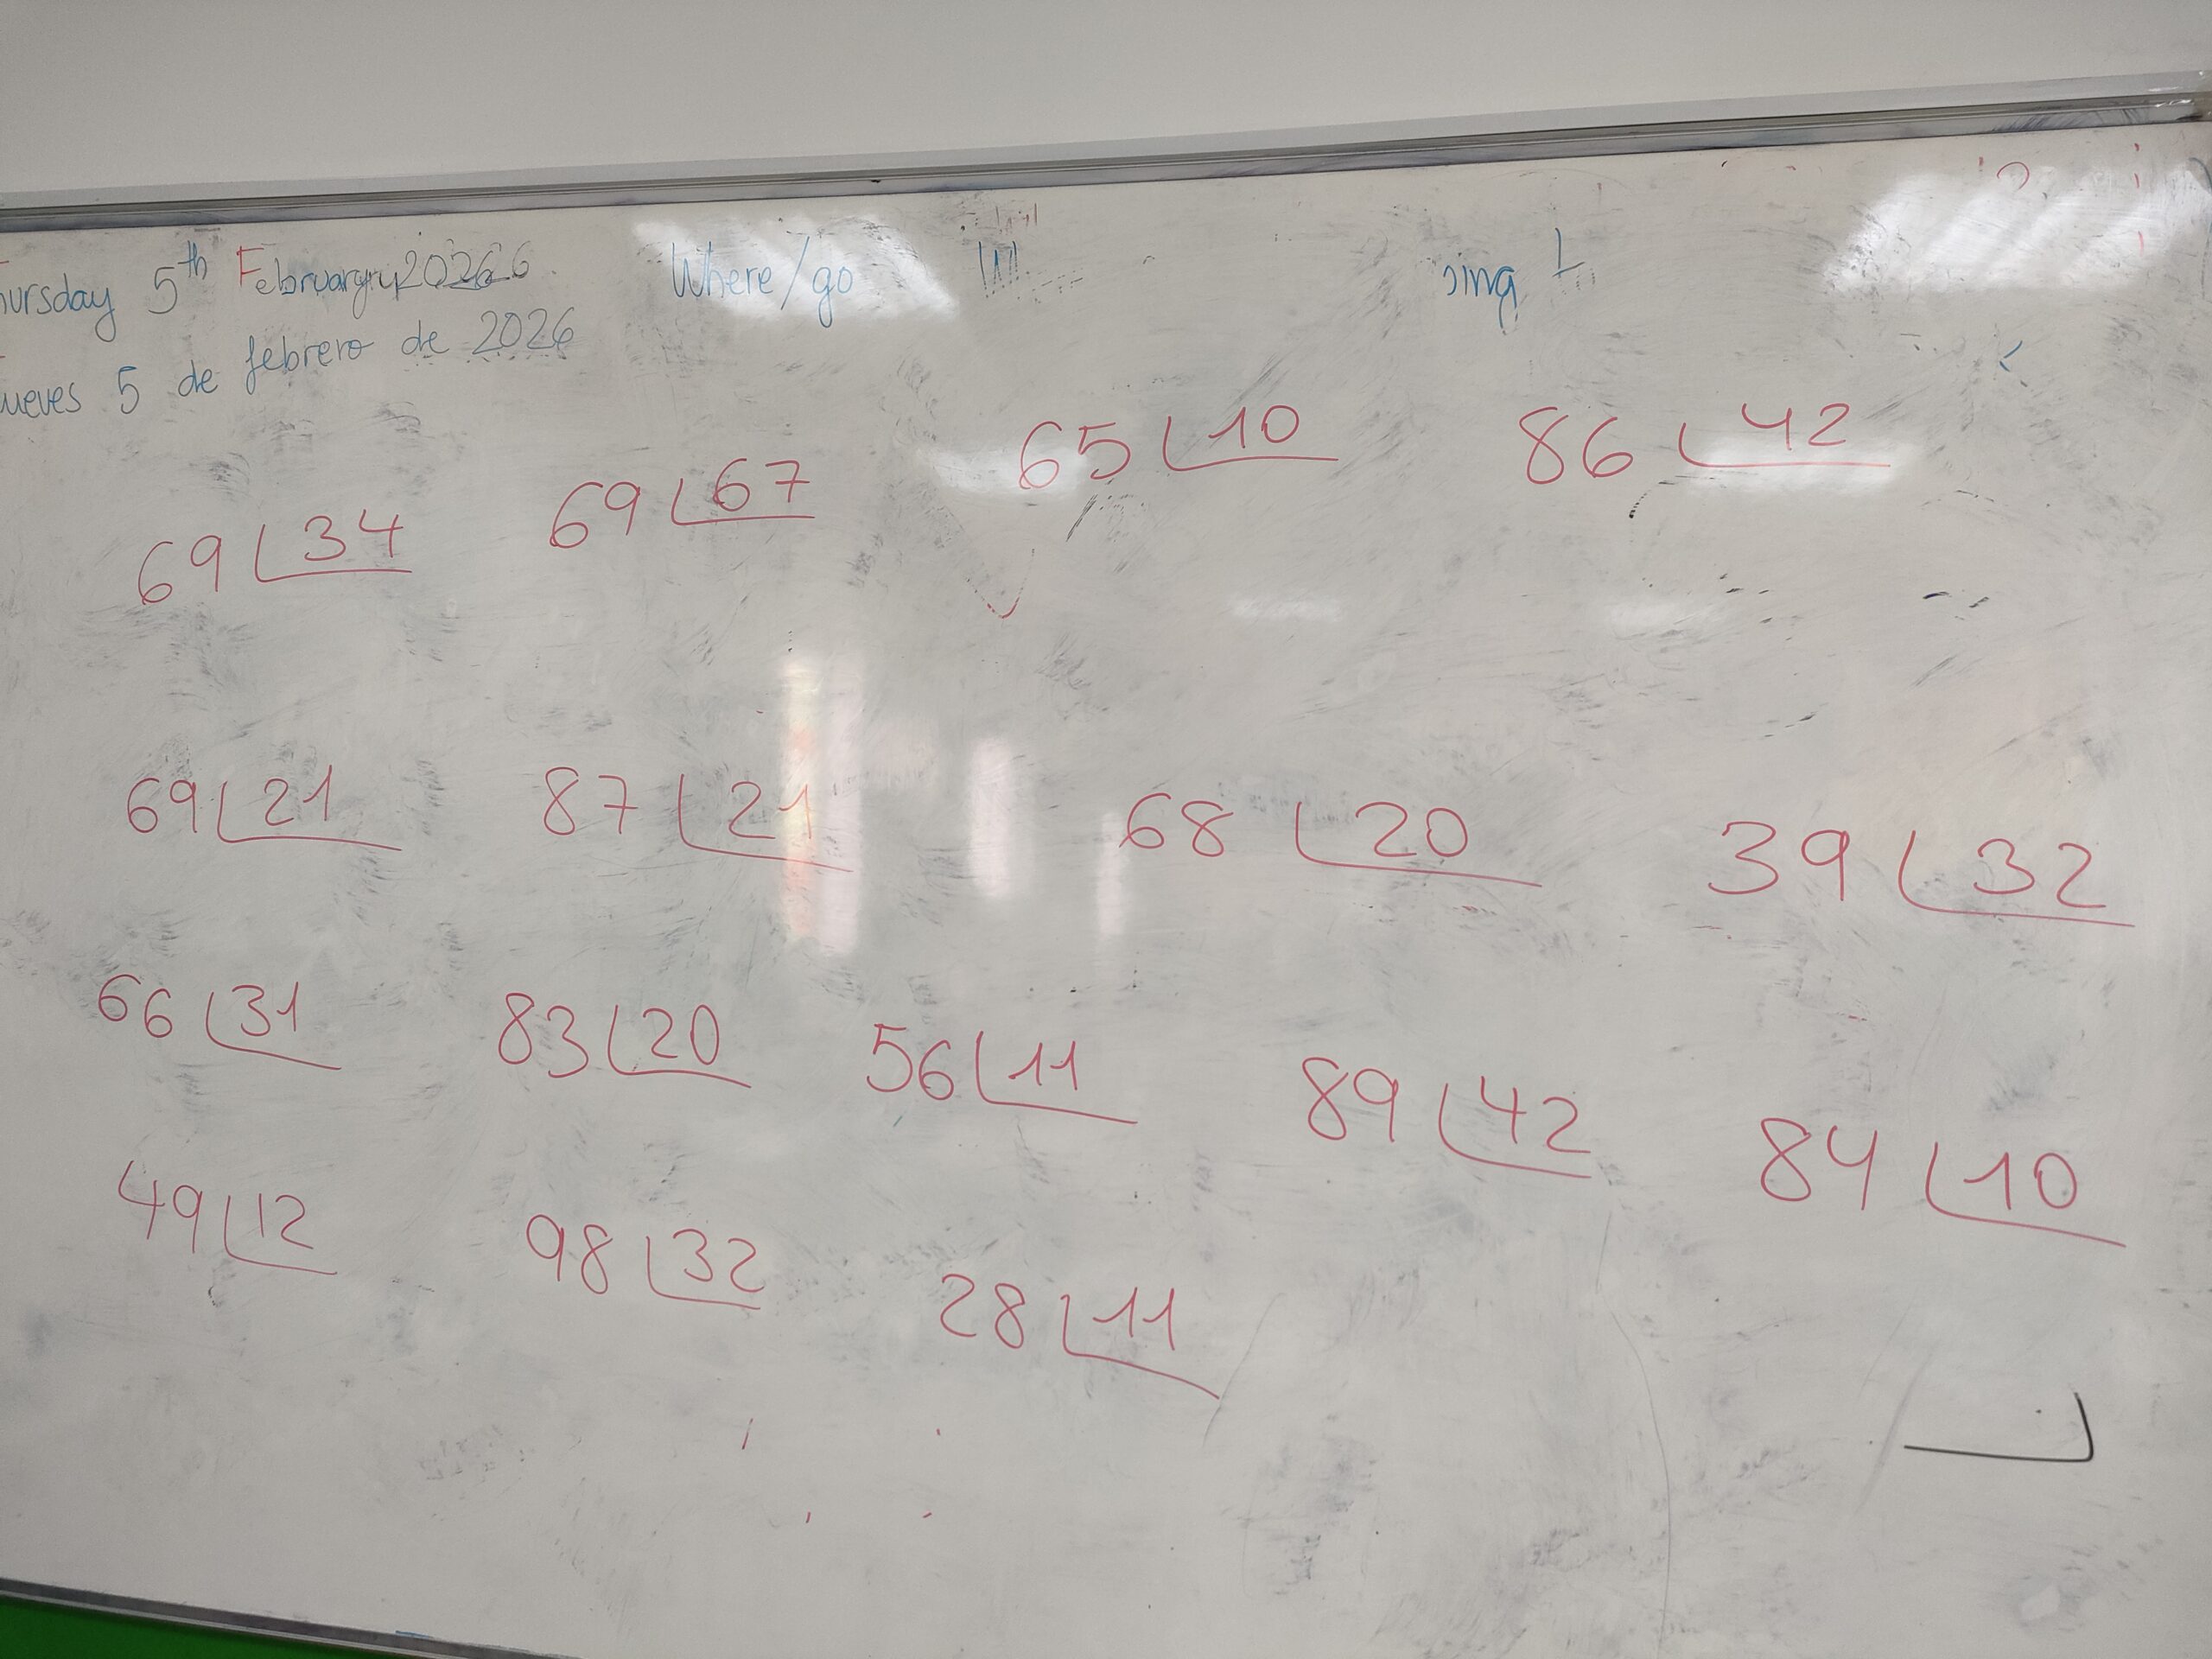 hursday 5th February 2026 Where/go
ueves 5 de febrero de 2026
69 34 69 67 65 10 86 42
69 21 87 21 68 20 39 32
66 31 83 20 56 11 89 42 84 10
49 12 98 32 28 11